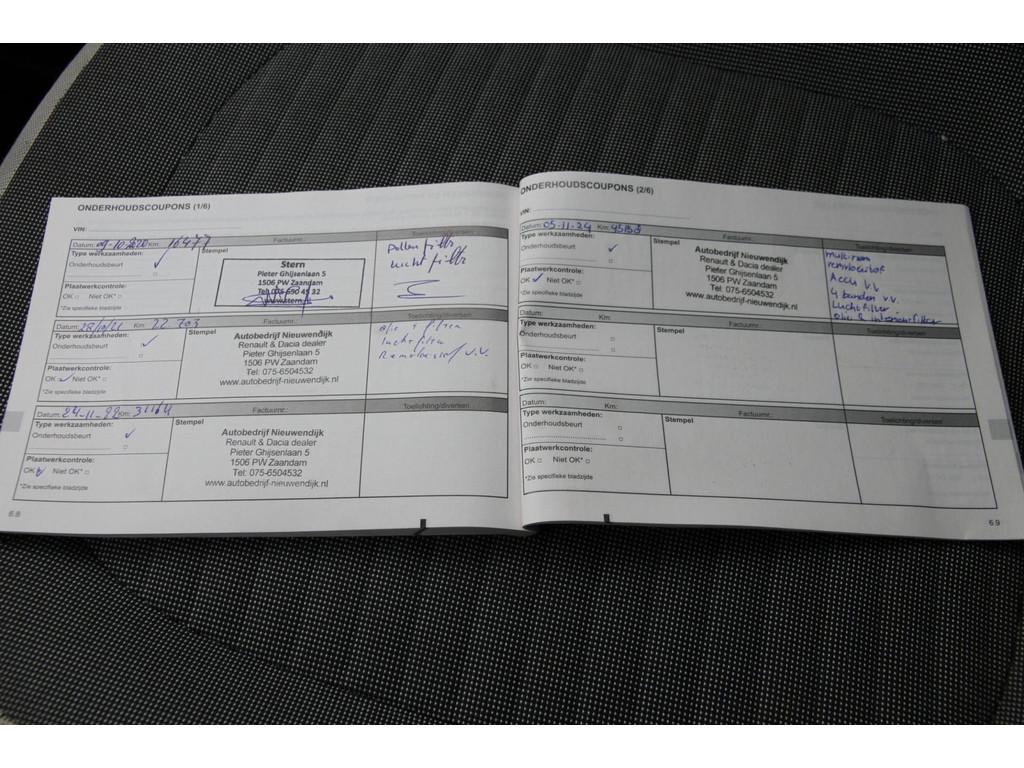 ONDERHOUDSCOUPONS (1/6)
VIN:
Datum: 09-10-2020 Km: 16477
Factuurnr.:
Toelichting/diversen
Type werkzaamheden:
Onderhoudsbeurt ✓
Stempel
Stern
Pieter Ghijsenlaan 5
1506 PW Zaandam
Tel. 075-690 45 32
Pollen filter
lucht filter
Plaatwerkcontrole:
OK □ Niet OK* □
*Zie specifieke bladzijde
Datum: Km: 22.703
Factuurnr.:
Toelichting/diversen
Type werkzaamheden:
Onderhoudsbeurt ✓
Stempel
Autobedrijf Nieuwendijk
Renault & Dacia dealer
Pieter Ghijsenlaan 5
1506 PW Zaandam
Tel: 075-6504532
www.autobedrijf-nieuwendijk.nl
Olie + filter
luchtfilter
Remvloeistof v.v.
Plaatwerkcontrole:
OK ✓ Niet OK* □
*Zie specifieke bladzijde
Datum: 24-11-22 Km: 31164
Factuurnr.:
Toelichting/diversen
Type werkzaamheden:
Onderhoudsbeurt ✓
Stempel
Autobedrijf Nieuwendijk
Renault & Dacia dealer
Pieter Ghijsenlaan 5
1506 PW Zaandam
Tel: 075-6504532
www.autobedrijf-nieuwendijk.nl
Plaatwerkcontrole:
OK Niet OK* □
*Zie specifieke bladzijde
6.8
ONDERHOUDSCOUPONS (2/6)
VIN:
Datum: 05-11-24 Km:
Factuurnr.:
Toelichting/diversen
Type werkzaamheden:
Onderhoudsbeurt ✓
Stempel
Autobedrijf Nieuwendijk
Renault & Dacia dealer
Pieter Ghijsenlaan 5
1506 PW Zaandam
Tel: 075-6504532
www.autobedrijf-nieuwendijk.nl
remvloeistof
Accu v.v.
4 banden v.v.
Luchtfilter
olie & interieurfilter
Plaatwerkcontrole:
OK ✓ Niet OK* □
*Zie specifieke bladzijde
Datum: Km:
Factuurnr.:
Toelichting/diversen
Type werkzaamheden:
Onderhoudsbeurt □
Stempel
Plaatwerkcontrole:
OK □ Niet OK* □
*Zie specifieke bladzijde
Datum: Km:
Factuurnr.:
Toelichting/diversen
Type werkzaamheden:
Onderhoudsbeurt □
Stempel
Plaatwerkcontrole:
OK □ Niet OK* □
*Zie specifieke bladzijde
6.9